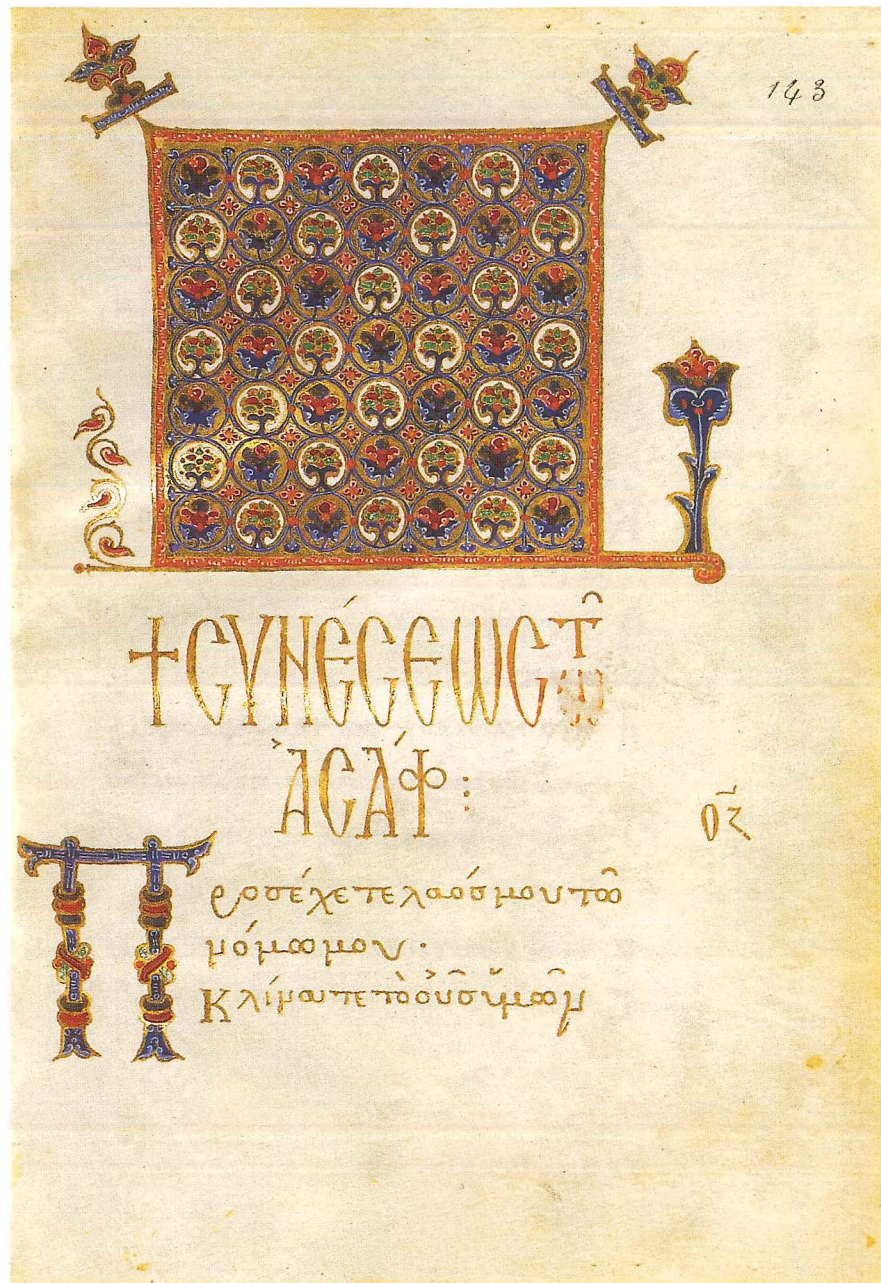 143
+ ϹΥΝΈϹΕΩϹ Τῶ
ἈϹΆΦ :
ΟΖ
Προσέχετε λαόσ μου τῶ
νόμω μου ·
Κλίνατε τὸ οὖσ ὑμῶν